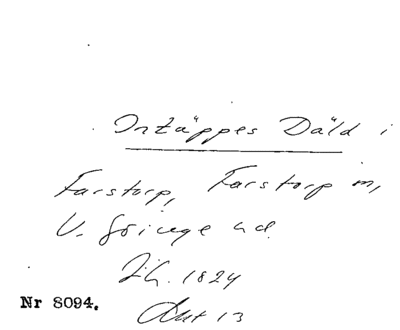 Ortäppes Däld i
Farstorp, Farstorp m,
V. Göinge hd.
1824
Nr 8094.
Akt 13